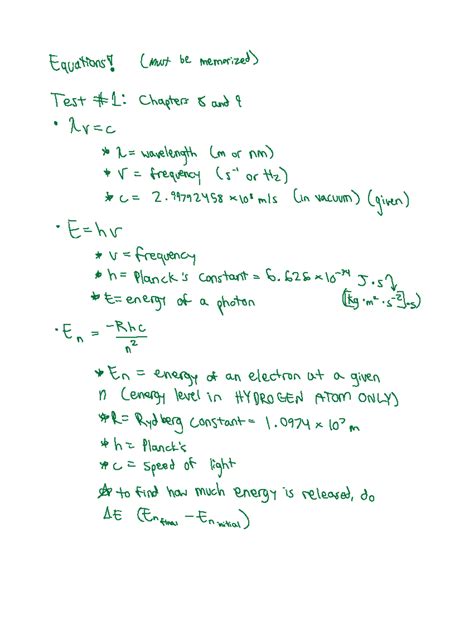 Equations! (must be memorized)
Test #1: Chapters 8 and 9
• λν = c
* λ = wavelength (m or nm)
* ν = frequency (s⁻¹ or Hz)
* c = 2.99792458 × 10⁸ m/s (in vacuum) (given)
• E = hν
* ν = frequency
* h = Planck's constant = 6.626 × 10⁻³⁴ J·s
* E = energy of a photon ([kg·m²·s⁻²]·s)
• Eₙ = -Rhc/n²
* Eₙ = energy of an electron at a given
n (energy level in HYDROGEN ATOM ONLY)
* R = Rydberg constant = 1.0974 × 10⁷ m
* h = Planck's
* c = speed of light
* to find how much energy is released, do
ΔE (Eₙ final - Eₙ initial)